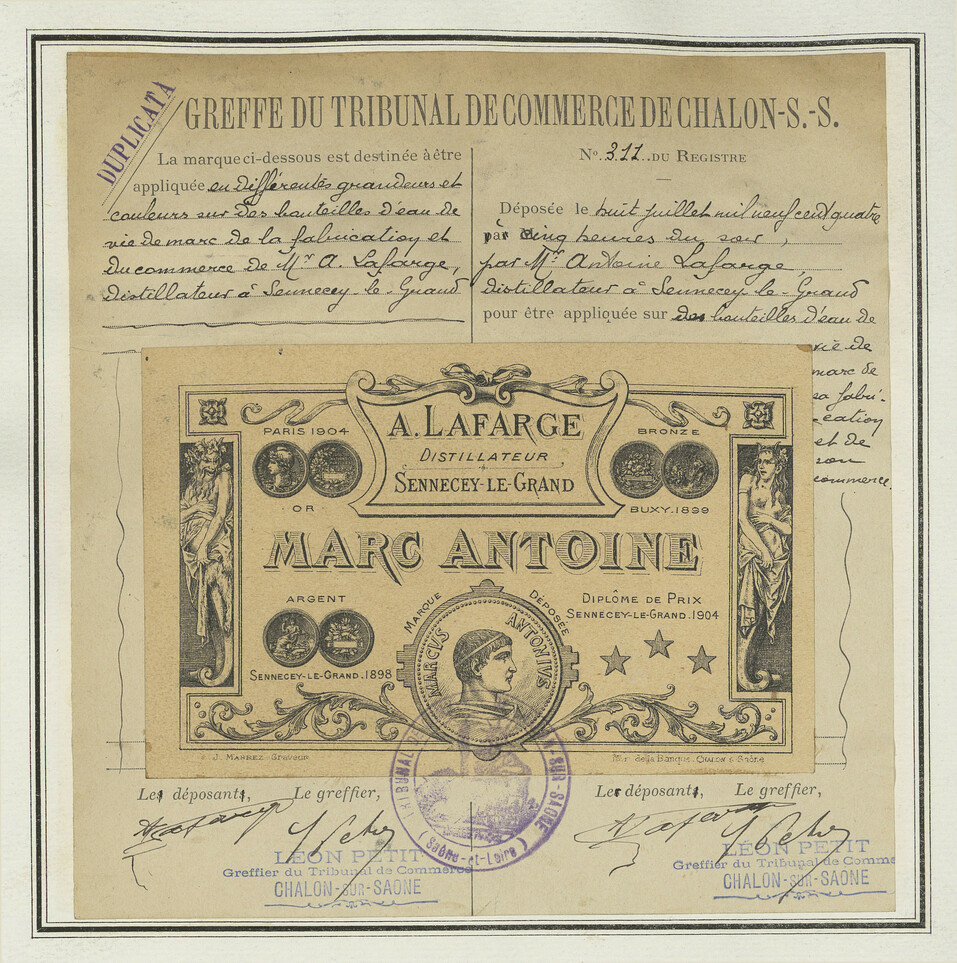 DUPLICATA
GREFFE DU TRIBUNAL DE COMMERCE DE CHALON-S.-S.
La marque ci-dessous est destinée à être
appliquée en différentes grandeurs et
couleurs sur des bouteilles d'eau de
vie de marc de la fabrication et
du commerce de Mr A. Lafarge,
distillateur à Sennecey-le-Grand
No. 311 DU REGISTRE
Déposée le huit juillet mil neuf cent quatre
à cinq heures du soir,
par Mr Antoine Lafarge,
distillateur à Sennecey-le-Grand
pour être appliquée sur des bouteilles d'eau de
vie de
marc de
sa fabri-
cation
et de
son
commerce.
A. LAFARGE
DISTILLATEUR
SENNECEY-LE-GRAND
PARIS 1904
OR
BRONZE
BUXY.1899
MARC ANTOINE
ARGENT
SENNECEY-LE-GRAND.1898
MARQUE DÉPOSÉE
MARCVS ANTONIVS
DIPLÔME DE PRIX
SENNECEY-LE-GRAND.1904
J. MARREZ Graveur
CHALON S SAÔNE
TRIBUNAL DE
-SUR-SAÔNE
(Saône-et-Loire)
Les déposants, Le greffier,
LÉON PETIT
Greffier du Tribunal de Commerce
CHALON-SUR-SAÔNE
Les déposants, Le greffier,
LÉON PETIT
Greffier du Tribunal de Comme
CHALON-SUR-SAÔNE